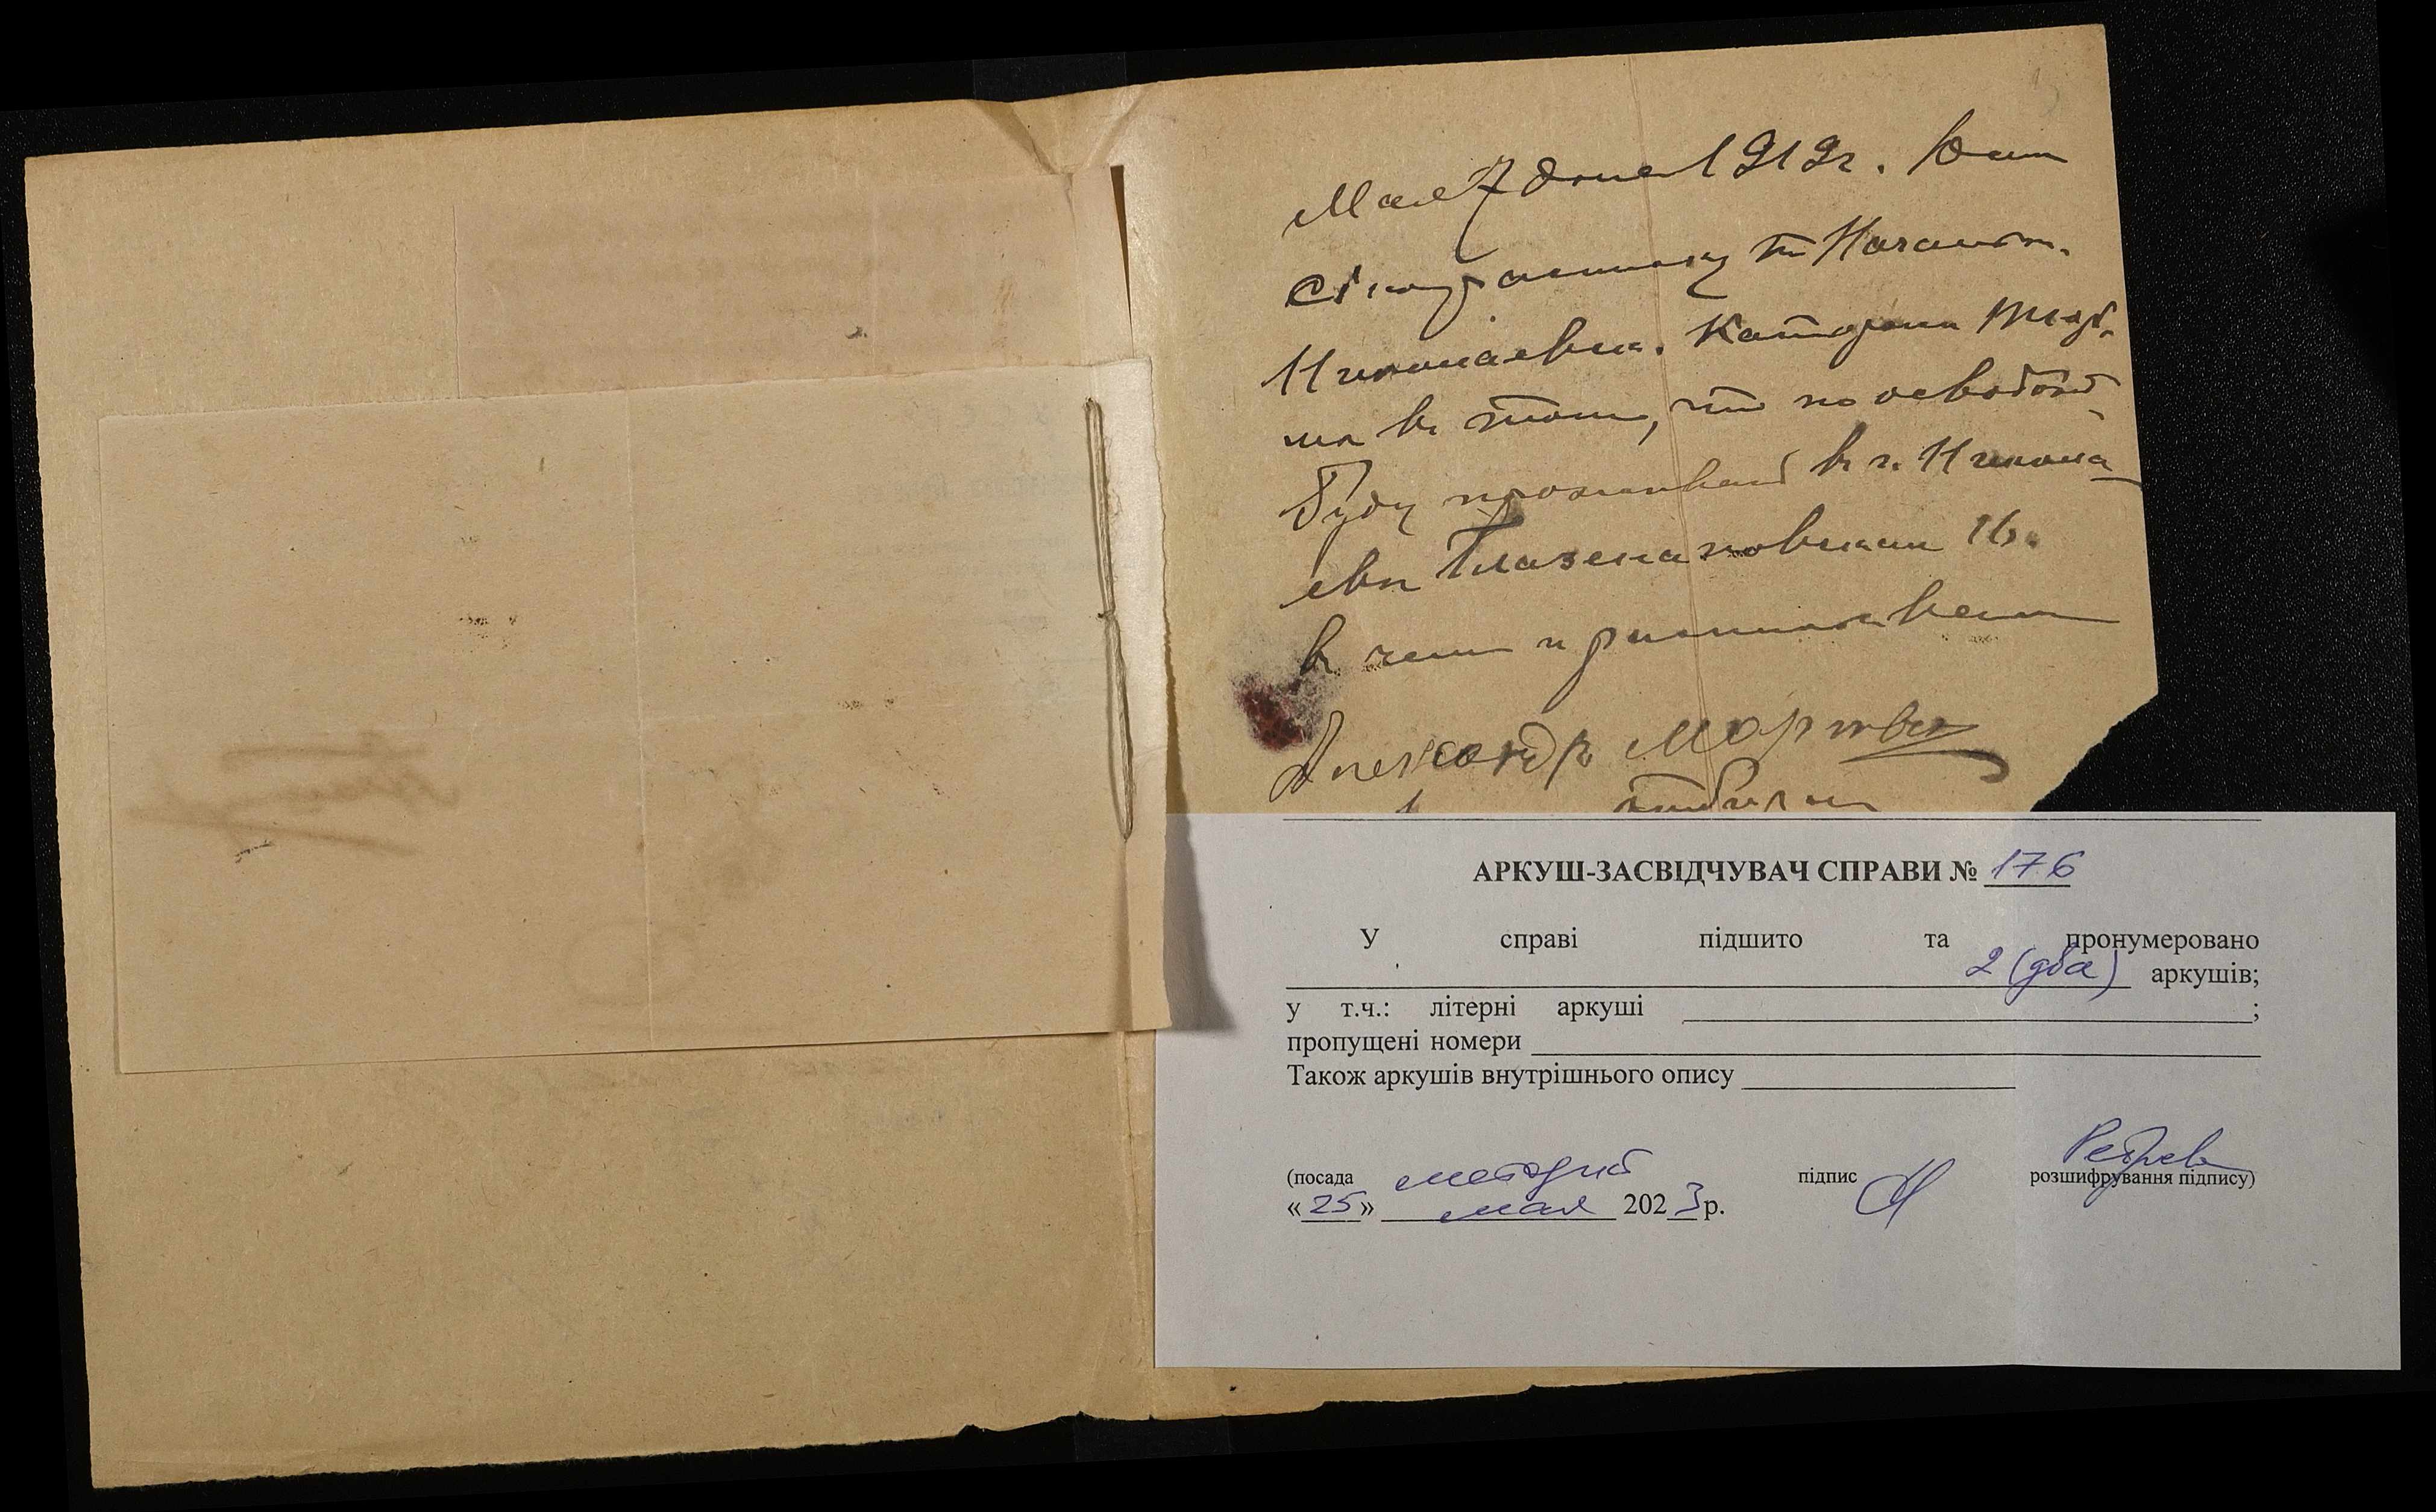 Мая 7 дня 1919 г. Дана
сия подписка
Николаевск. Каторжн. тюрь-
мы в том, что по освобожд.
Буду проживать в г. Никола-
еве Глазенаповская 16.
в чем и расписываюсь
Александр Марты
АРКУШ-ЗАСВІДЧУВАЧ СПРАВИ № 176
У справі підшито та пронумеровано
2 (два) аркушів;
у т.ч.: літерні аркуші ;
пропущені номери
Також аркушів внутрішнього опису
(посада методист підпис розшифрування підпису)
«25» мая 2023 р.